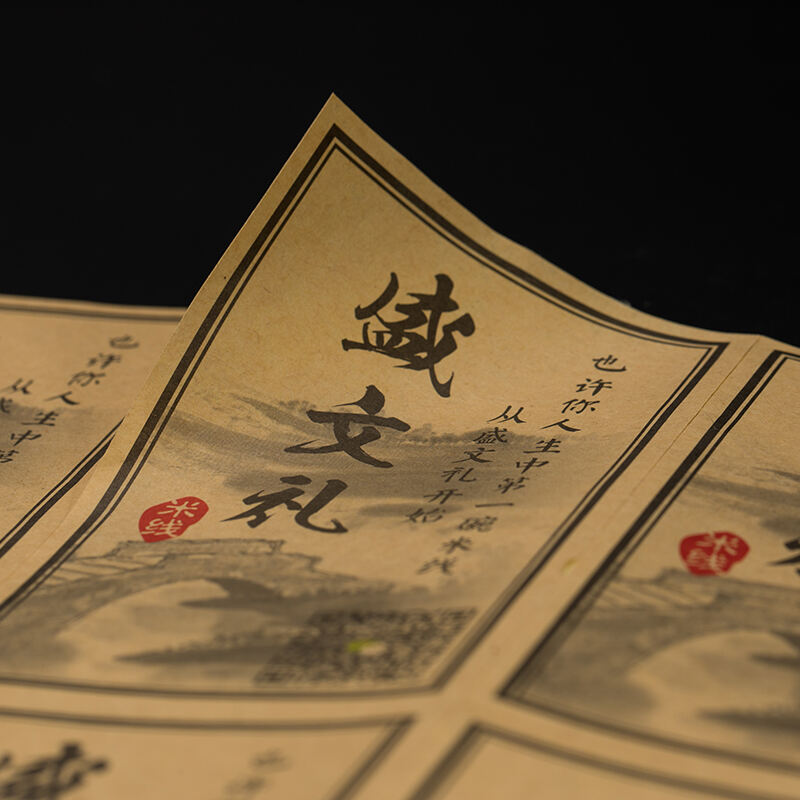 盛文礼
米线
也许你人生中第一碗米线
从盛文礼开始
也许你人生中第
从
米线
盛